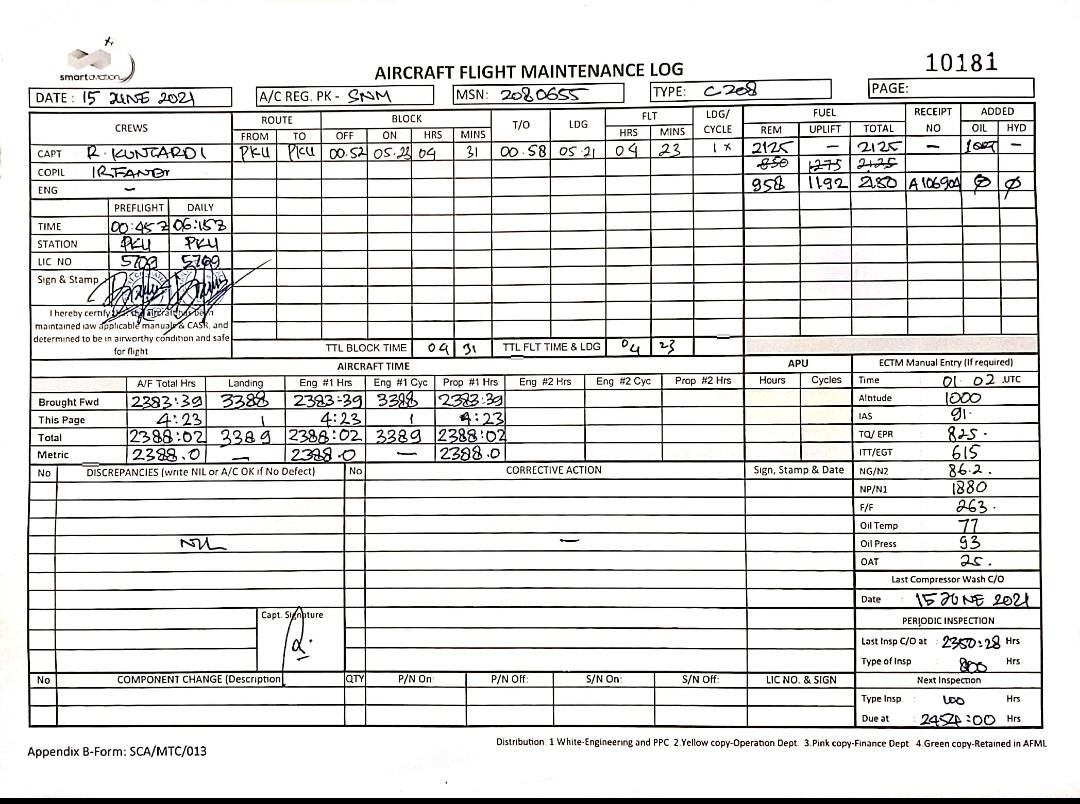 smartaviation
10181
AIRCRAFT FLIGHT MAINTENANCE LOG
DATE : 15 JUNE 2021 A/C REG. PK - SNM MSN: 2080655 TYPE: C208 PAGE:
CREWS ROUTE BLOCK T/O LDG FLT LDG/ CYCLE FUEL RECEIPT NO ADDED
FROM TO OFF ON HRS MINS HRS MINS REM UPLIFT TOTAL OIL HYD
CAPT R. KUNCARDI PKU PKU 00.52 05.23 04 31 00.58 05.21 04 23 1 x 2125 — 2125 — —
COPIL IRFANDI 850 1275 2125
ENG — 958 1192 2150 A106904 Ø Ø
PREFLIGHT DAILY
TIME 00:45 z 06:15 z
STATION PKU PKU
LIC NO 5709 5709
Sign & Stamp
I hereby certify that the aircraft has been
maintained iaw applicable manuals & CASR. and
determined to be in airworthy condition and safe
for flight
TTL BLOCK TIME 04 31 TTL FLT TIME & LDG 04 23
AIRCRAFT TIME APU ECTM Manual Entry (If required)
A/F Total Hrs Landing Eng #1 Hrs Eng #1 Cyc Prop #1 Hrs Eng #2 Hrs Eng #2 Cyc Prop #2 Hrs Hours Cycles Time : 01 02 .UTC
Brought Fwd 2383:39 3388 2383:39 3388 2383:39 Altitude : 1000
This Page 4:23 1 4:23 1 4:23 IAS : 91.
Total 2388:02 3389 2388:02 3389 2388:02 TQ/ EPR : 825.
Metric 2388.0 — 2388.0 — 2388.0 ITT/EGT : 615
No DISCREPANCIES (write NIL or A/C OK if No Defect) No CORRECTIVE ACTION Sign, Stamp & Date NG/N2 : 86.2.
NP/N1 : 1880
F/F : 263.
Oil Temp : 77
NIL — Oil Press : 93
OAT : 25.
Last Compressor Wash C/O
Date : 15 JUNE 2021
Capt. Signature
PERIODIC INSPECTION
Last Insp C/O at : 2350:28 Hrs
Type of Insp : 800 Hrs
No COMPONENT CHANGE (Description) QTY P/N On: P/N Off: S/N On: S/N Off: LIC NO. & SIGN Next Inspection
Type Insp : 100 Hrs
Due at : 2454:00 Hrs
Appendix B-Form: SCA/MTC/013
Distribution. 1 White-Engineering and PPC 2.Yellow copy-Operation Dept. 3.Pink copy-Finance Dept 4.Green copy-Retained in AFML